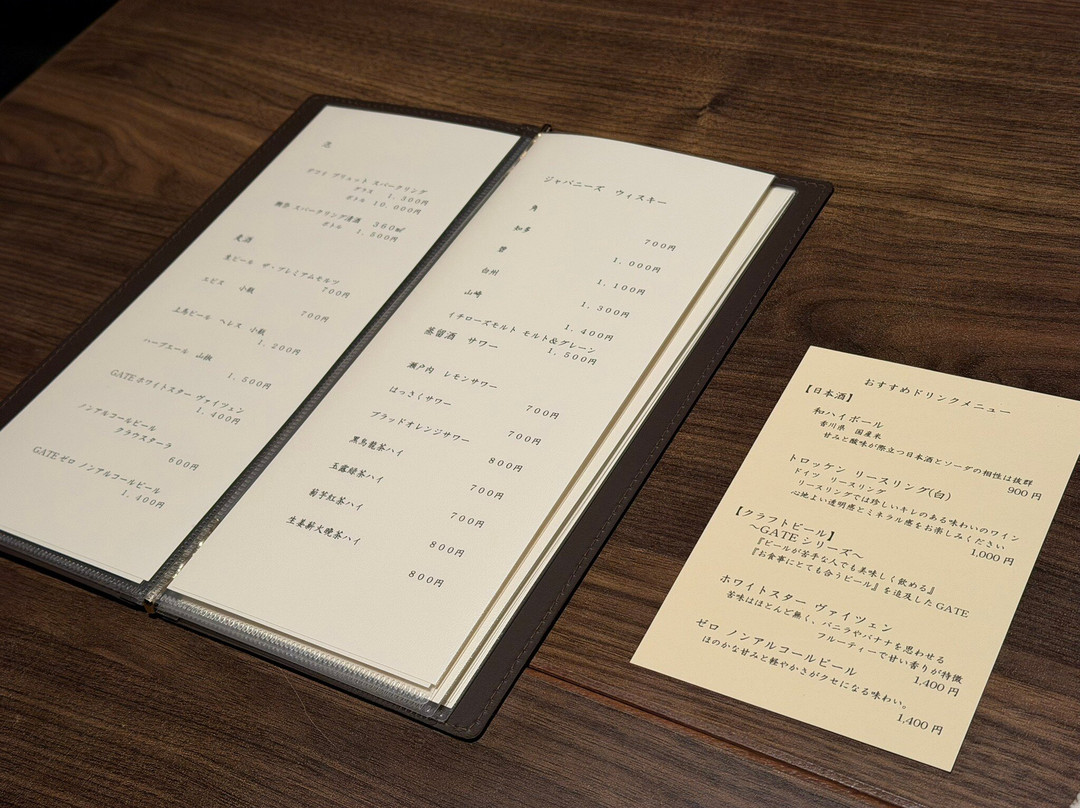 泡
グラス 1,300円
ボトル 10,000円
スパークリング清酒 360㎖
ボトル 1,500円
麦酒
生ビール ザ・プレミアムモルツ
700円
エビス 小瓶
700円
上馬ビール ヘレス 小瓶
1,200円
ハーブエール 山椒
1,500円
GATEホワイトスター ヴァイツェン
1,400円
ノンアルコールビール
クラウスターラ
600円
GATEゼロ ノンアルコールビール
1,400円
ジャパニーズ ウィスキー
角
700円
知多
1,000円
響
1,100円
白州
1,300円
山崎
1,400円
イチローズモルト モルト&グレーン
1,500円
蒸留酒 サワー
瀬戸内 レモンサワー
700円
はっさくサワー
700円
ブラッドオレンジサワー
800円
黒烏龍茶ハイ
700円
玉露緑茶ハイ
700円
菊芋紅茶ハイ
800円
生姜薪火晩茶ハイ
800円
おすすめドリンクメニュー
【日本酒】
和ハイボール
香川県 国産米
甘みと酸味が際立つ日本酒とソーダの相性は抜群
900円
トロッケン リースリング(白)
ドイツ リースリング
リースリングでは珍しいキレのある味わいのワイン
心地よい透明感とミネラル感をお楽しみください
1,000円
【クラフトビール】
～GATEシリーズ～
『ビールが苦手な人でも美味しく飲める』
『お食事にとても合うビール』を追及したGATE
ホワイトスター ヴァイツェン
苦味はほとんど無く、バニラやバナナを思わせる
フルーティーで甘い香りが特徴
1,400円
ゼロ ノンアルコールビール
ほのかな甘みと軽やかさがクセになる味わい。
1,400円